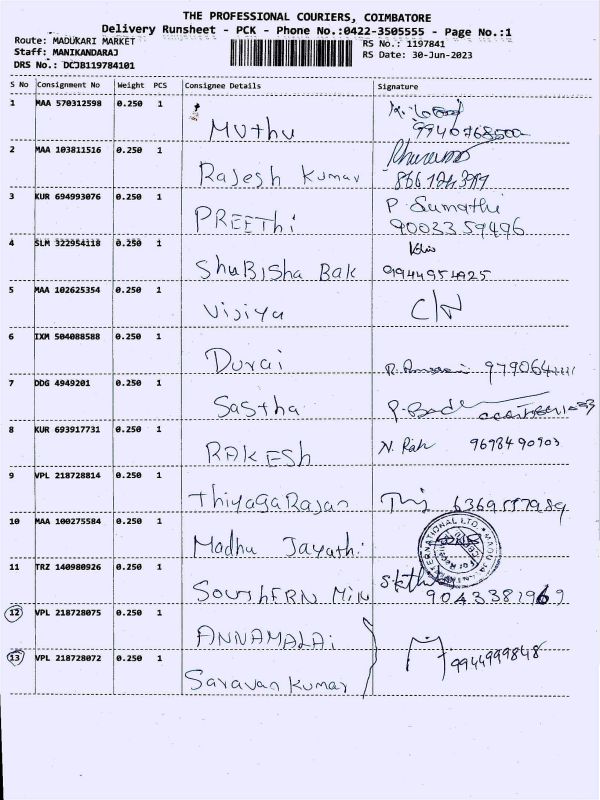 THE PROFESSIONAL COURIERS, COIMBATORE
Delivery Runsheet - PCK - Phone No.:0422-3505555 - Page No.:1
Route: MADUKARI MARKET
RS No.: 1197841
Staff: MANIKANDARAJ
RS Date: 30-Jun-2023
DRS No.: DCJB119784101
S No Consignment No Weight PCS Consignee Details Signature
1 MAA 570312598 0.250 1 Muthu
2 MAA 103811516 0.250 1 Rajesh Kumar
3 KUR 694993076 0.250 1 PREETHi P Sumathi
9003359496
4 SLM 322954118 0.250 1 ShuBisha Bak
5 MAA 102625354 0.250 1 Vijiya C/N
6 IXM 504088588 0.250 1 Durai
7 DDG 4949201 0.250 1 Sastha
8 KUR 693917731 0.250 1 RAKESH N. Rak 9698490903
9 VPL 218728814 0.250 1 Thiyaga Rajan
10 MAA 100275584 0.250 1 Madhu Jayathi
11 TRZ 140980926 0.250 1 SOUTHERN MIN
12 VPL 218728075 0.250 1 ANNAMALAi
9944999848
13 VPL 218728072 0.250 1 Saravan Kumar